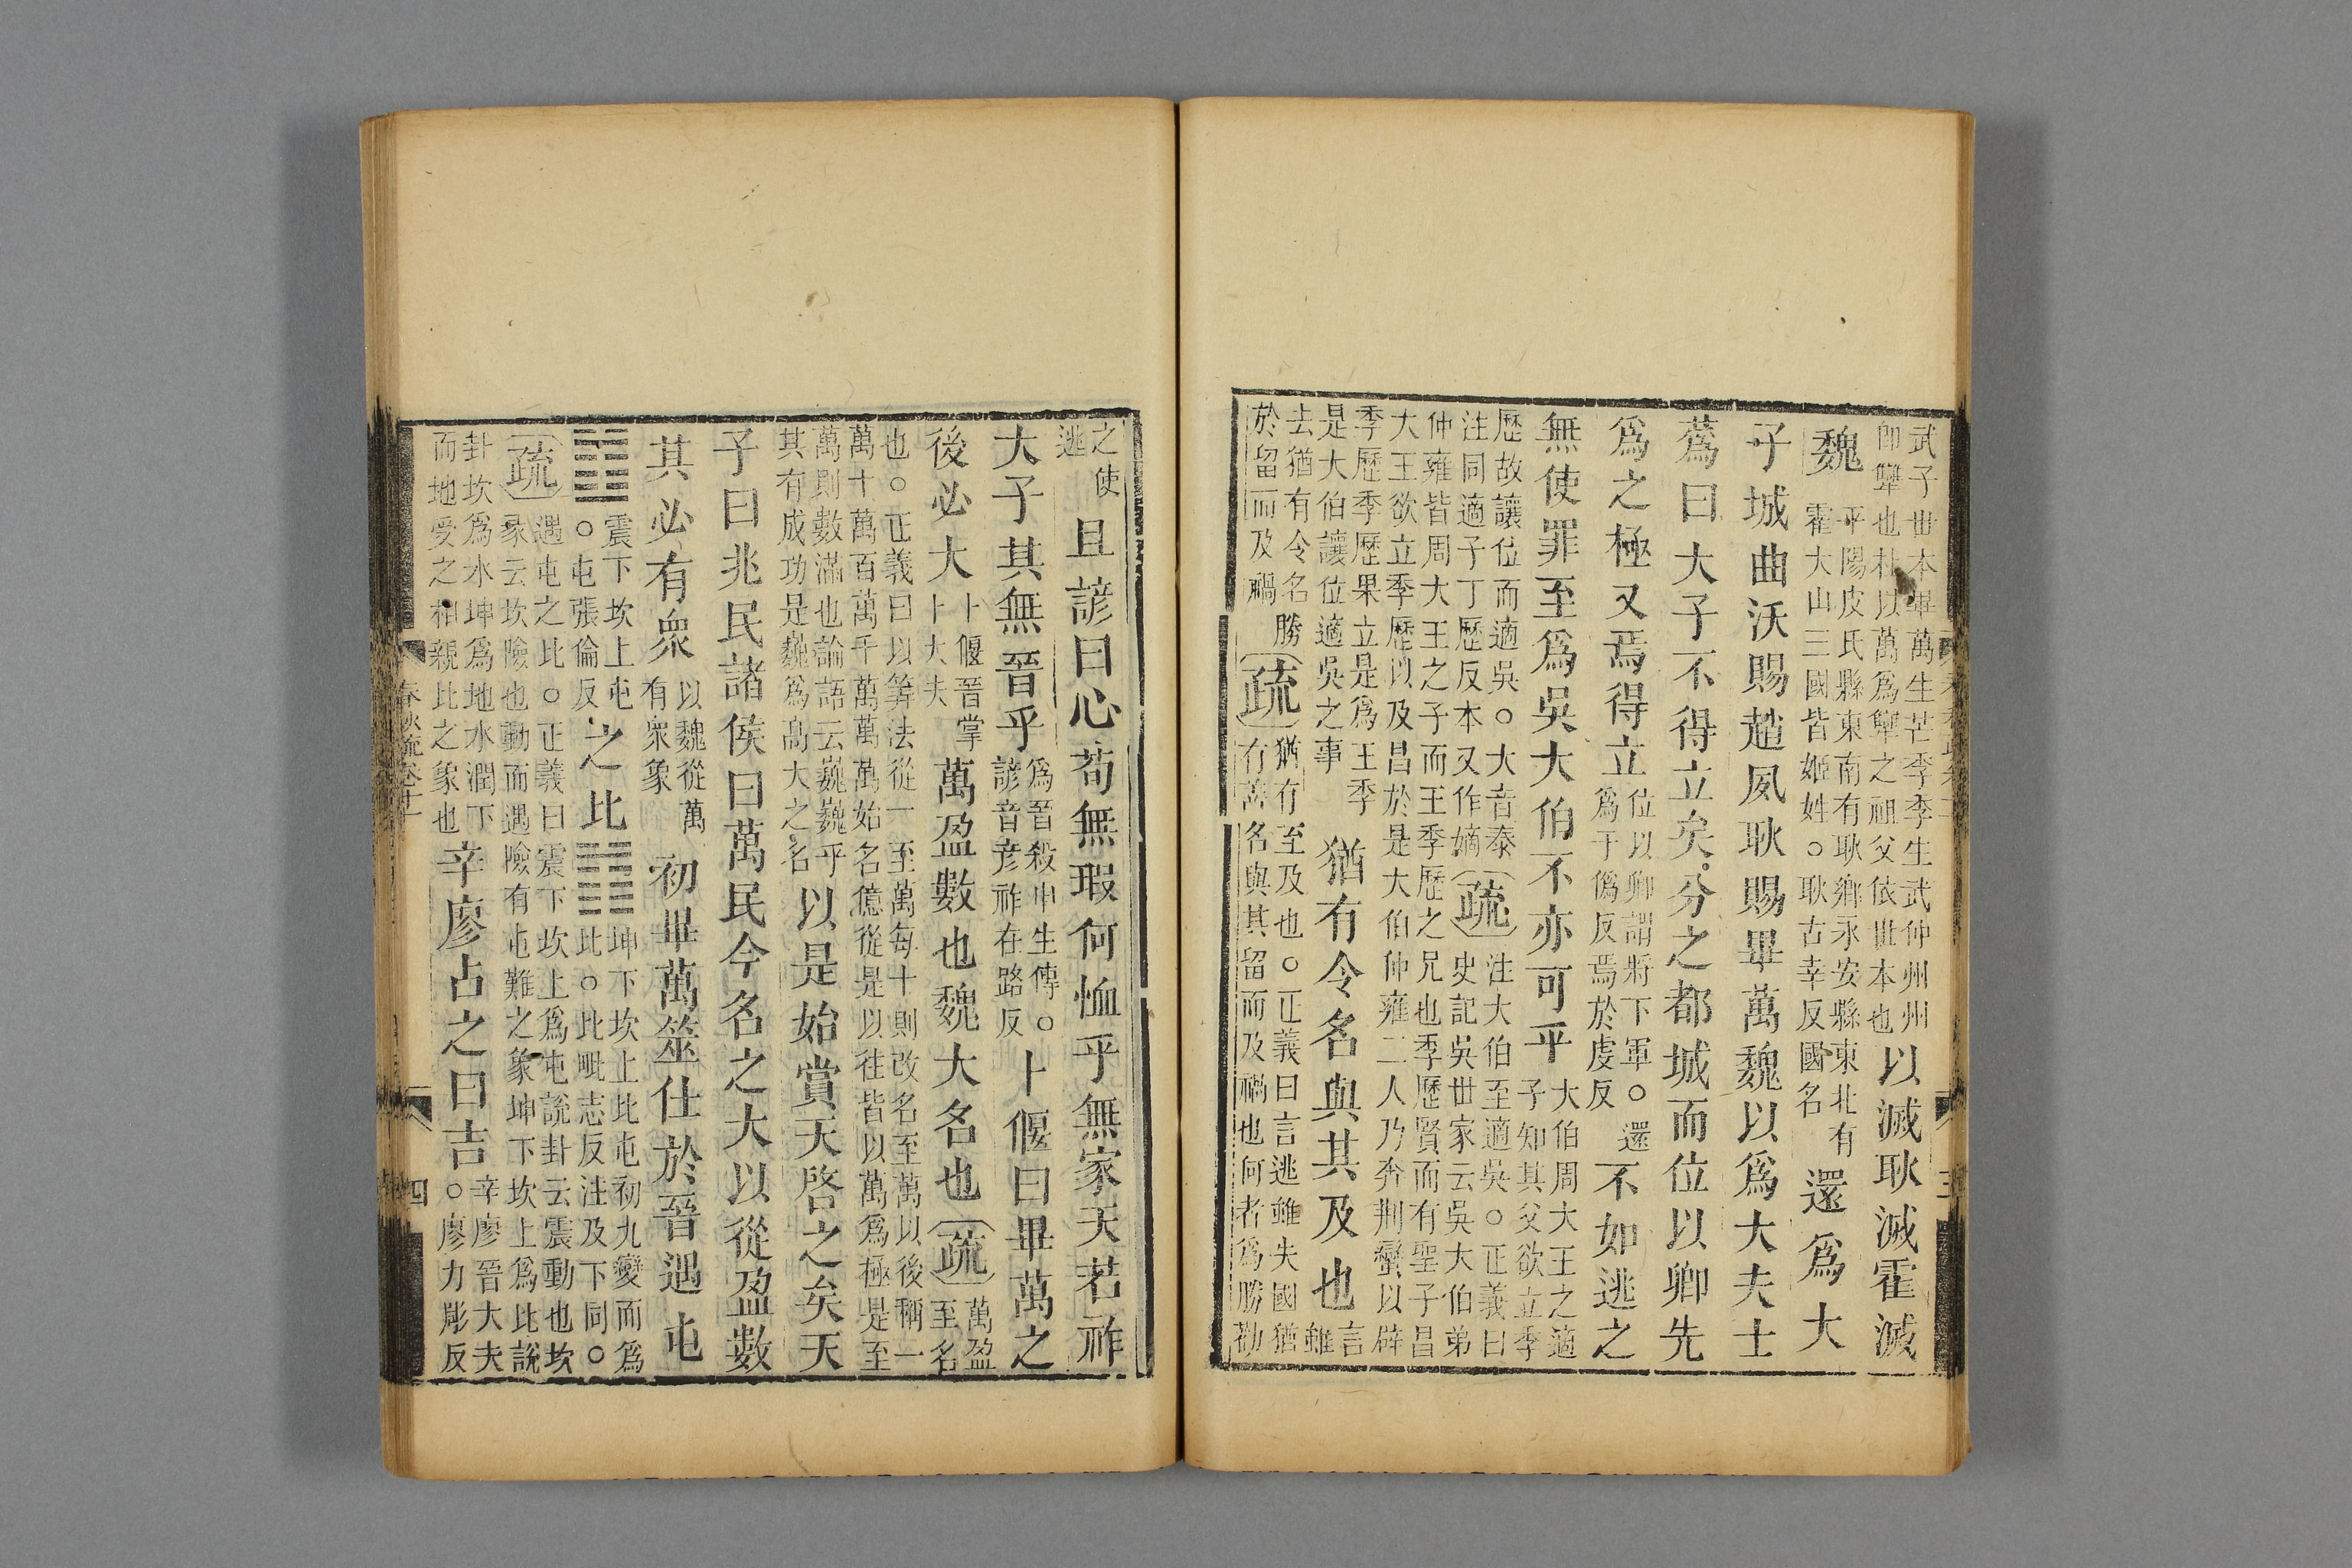 武子丗本畢萬生芒季季生武仲州州
即犨也杜以萬爲犨之祖父依丗本也
以滅耿滅霍滅
魏
平陽皮氏縣東南有耿鄉永安縣東北有
霍大山三國皆姬姓○耿古幸反國名
還爲大
子城曲沃賜趙夙耿賜畢萬魏以爲大夫士
蔿曰大子不得立矣分之都城而位以卿先
爲之極又焉得立
位以卿謂將下軍○還
爲于僞反焉於虔反
不如逃之
無使罪至爲吳大伯不亦可乎
大伯周大王之適
子知其父欲立季
歷故讓位而適吳○大音泰
注同適子丁歷反本又作嫡
疏
注大伯至適吳○正義曰
史記吳丗家云吳大伯弟
仲雍皆周大王之子而王季歷之兄也季歷賢而有聖子昌
大王欲立季歷以及昌於是大伯仲雍二人乃奔荆蠻以辟
季歷季歷果立是爲王季
是大伯讓位適吳之事
猶有令名與其及也
言
雖
去猶有令名勝
於留而及禍
疏
猶有至及也○正義曰言逃雖失國猶
有善名與其留而及禍也何者爲勝勸
之使
逃
且諺曰心苟無瑕何恤乎無家天若祚
大子其無晉乎
爲晉殺申生傳○
諺音彦祚在路反
卜偃曰畢萬之
後必大
卜偃晉掌
卜大夫
萬盈數也魏大名也
疏
萬盈
至名
也○正義曰以筭法從一至萬每十則改名至萬以後稱一
萬十萬百萬千萬萬萬始名億從是以往皆以萬爲極是至
萬則數滿也論語云巍巍乎
其有成功是巍爲高大之名
以是始賞天啓之矣天
子曰兆民諸侯曰萬民今名之大以從盈數
其必有衆
以魏從萬
有衆象
初畢萬筮仕於晉遇屯
䷂
震下坎上屯
○屯張倫反
之比
䷇
坤下坎上比屯初九變而爲
比○比毗志反注及下同○
疏
遇屯之比○正義曰震下坎上爲屯說卦云震動也坎
彖云坎險也動而遇險有屯難之象坤下坎上爲比說
卦坎爲水坤爲地水潤下
而地受之相親比之象也
辛廖占之曰吉
辛廖晉大夫
○廖力彫反
春秋疏卷十一
四